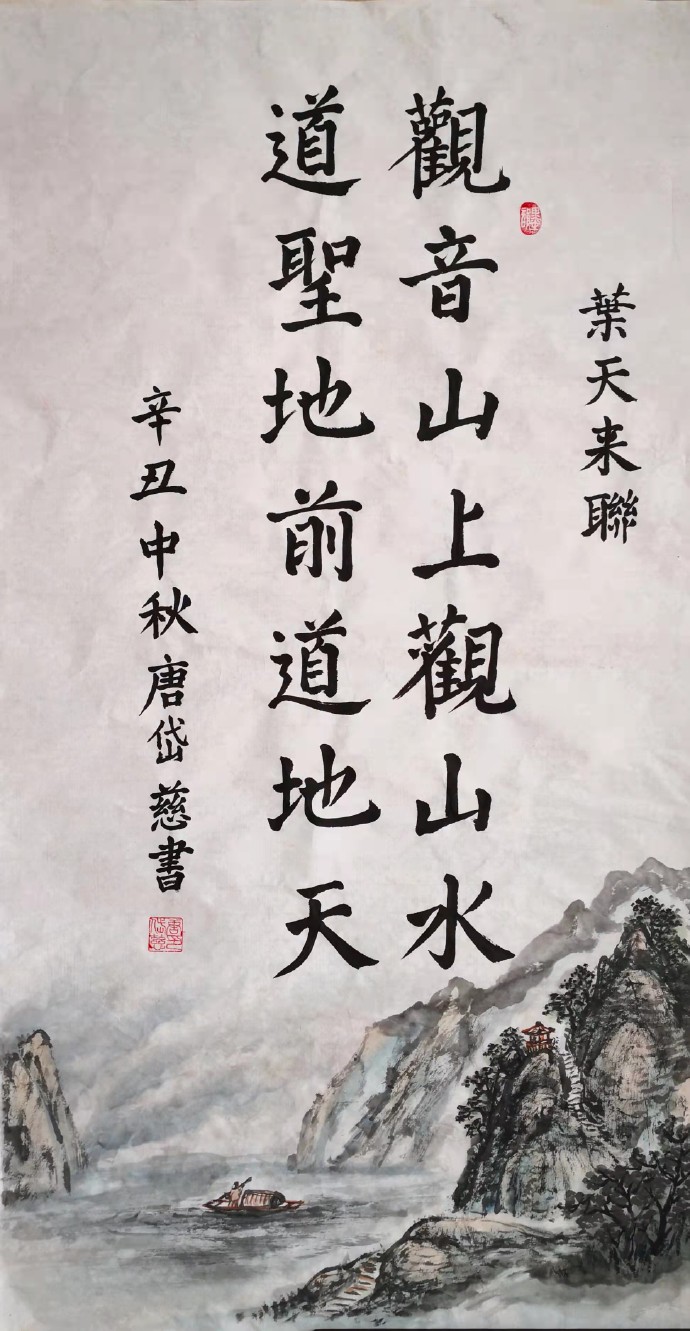 葉天来聯
觀音山上觀山水
道聖地前道地天
辛丑中秋唐岱慈書